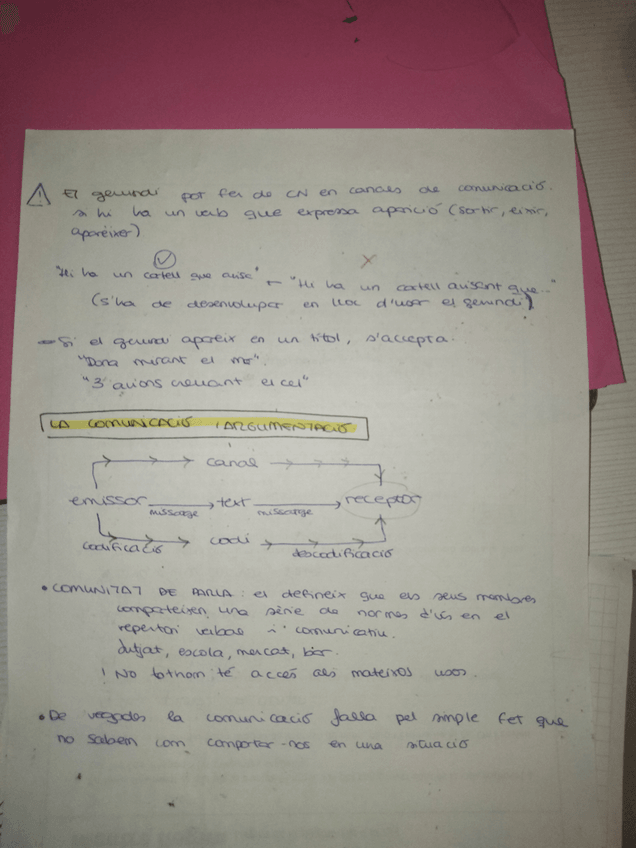 ⚠ El gerundi pot fer de CN en canals de comunicació
si hi ha un verb que expressa aparició (sortir, eixir,
aparèixer)
"Hi ha un cartell que avisa" ← "Hi ha un cartell avisant que..."
(s'ha de desenvolupar en lloc d'usar el gerundi)
Si el gerundi apareix en un títol, s'accepta.
"Dona mirant el mar".
"3 avions creuant el cel"
LA COMUNICACIÓ I ARGUMENTACIÓ
canal
emissor missatge text missatge receptor
codificació codi descodificació
• COMUNITAT DE PARLA: el defineix que els seus membres
comparteixen una sèrie de normes d'ús en el
repertori verbal i comunicatiu.
jutjat, escola, mercat, bar.
! No tothom té accés als mateixos usos.
• De vegades la comunicació falla pel simple fet que
no sabem com comportar-nos en una situació